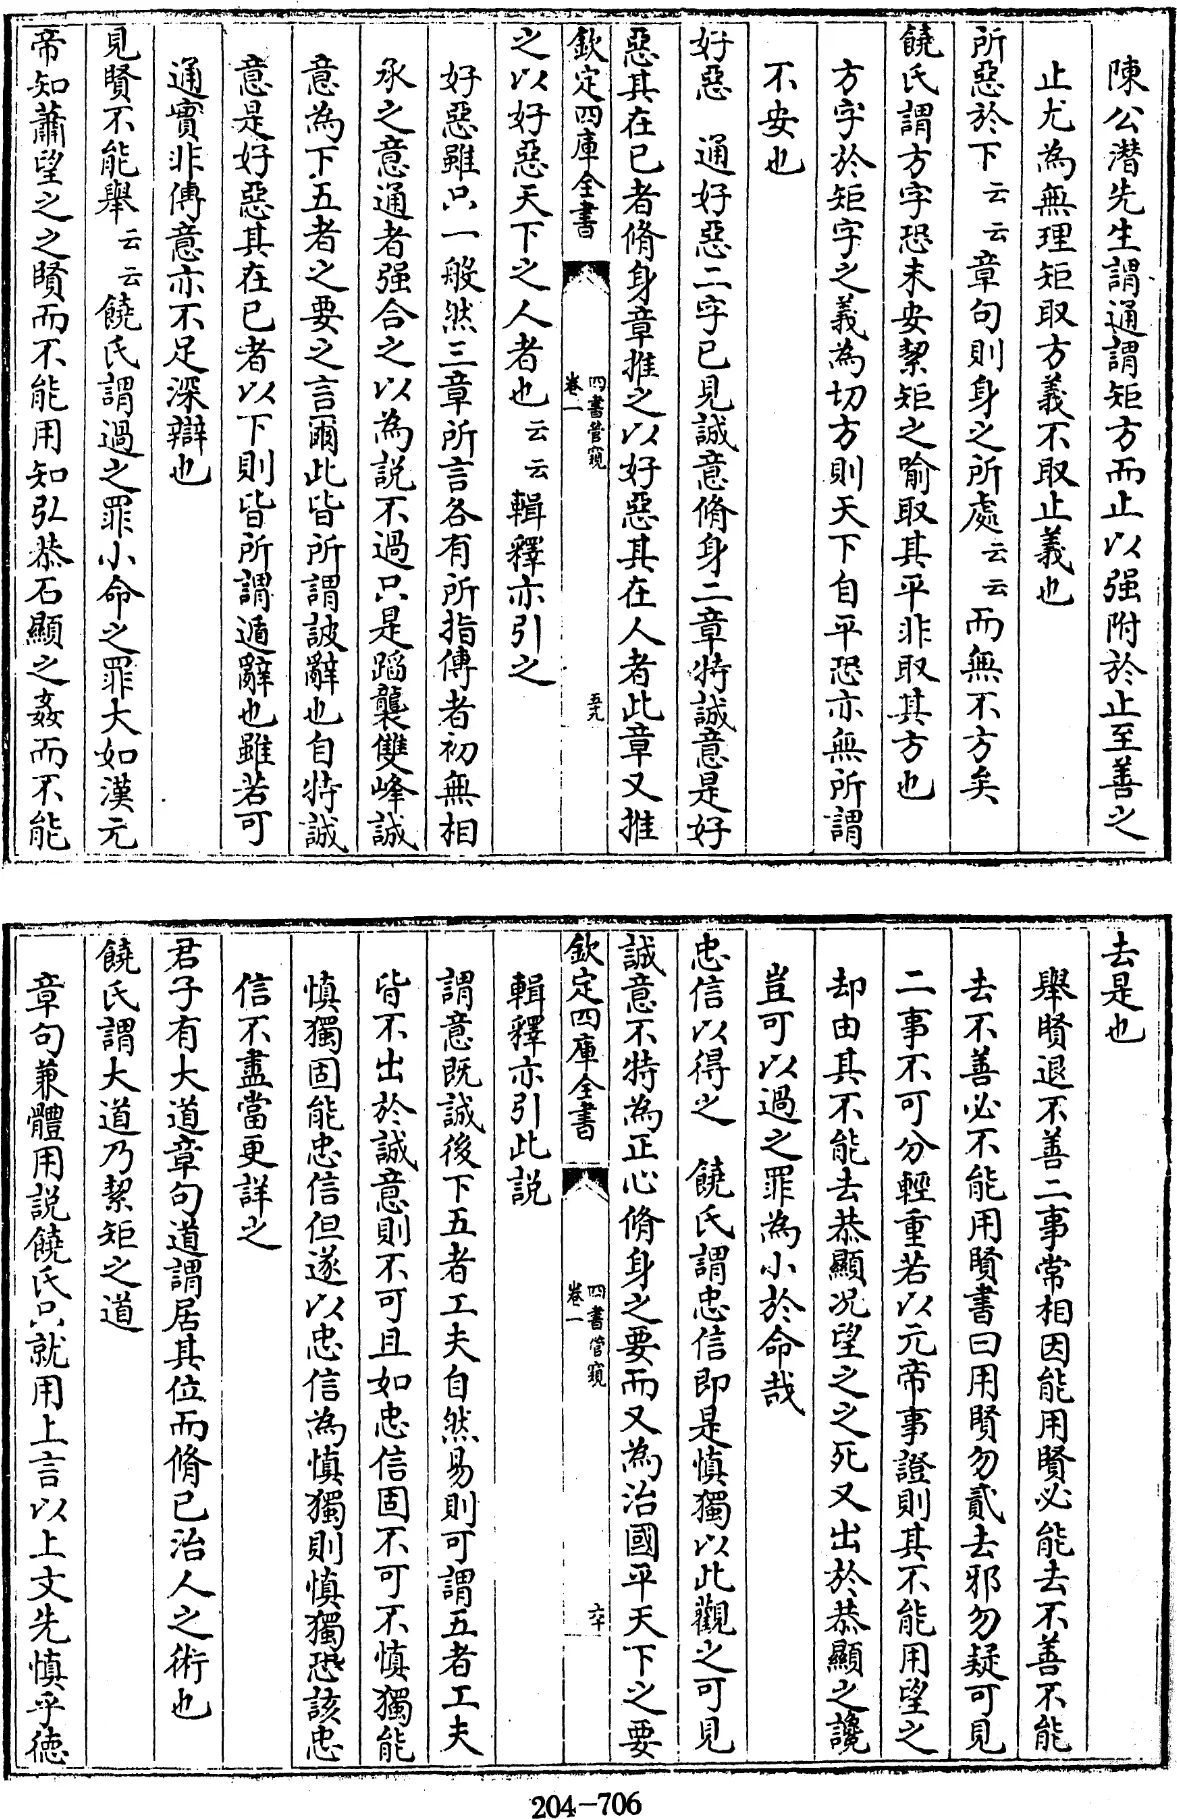 陳公潛先生謂通謂矩方而止以强附於止至善之
止尤為無理矩取方義不取止義也
所惡於下云云章句則身之所處云云而無不方矣
饒氏謂方字恐未安絜矩之喻取其平非取其方也
方字於矩字之義為切方則天下自平恐亦無所謂
不安也
好惡　通好惡二字已見誠意脩身二章特誠意是好
惡其在已者脩身章推之以好惡其在人者此章又推
欽定四庫全書　四書管窺　卷一　五九
之以好惡天下之人者也云云輯釋亦引之
好惡雖只一般然三章所言各有所指傳者初無相
承之意通者强合之以為説不過只是蹈襲雙峰誠
意為下五者之要之言爾此皆所謂詖辭也自特誠
意是好惡其在已者以下則皆所謂遁辭也雖若可
通實非傳意亦不足深辯也
見賢不能舉云云饒氏謂過之罪小命之罪大如漢元
帝知蕭望之之賢而不能用知弘恭石顯之姦而不能
去是也
舉賢退不善二事常相因能用賢必能去不善不能
去不善必不能用賢書曰用賢勿貳去邪勿疑可見
二事不可分輕重若以元帝事證則其不能用望之
却由其不能去恭顯况望之之死又出於恭顯之讒
豈可以過之罪為小於命哉
忠信以得之　饒氏謂忠信即是慎獨以此觀之可見
誠意不特為正心脩身之要而又為治國平天下之要
欽定四庫全書　四書管窺　卷一　六十
輯釋亦引此説
謂意既誠後下五者工夫自然易則可謂五者工夫
皆不出於誠意則不可且如忠信固不可不慎獨能
慎獨固能忠信但遂以忠信為慎獨則慎獨恐該忠
信不盡當更詳之
君子有大道章句道謂居其位而脩已治人之術也
饒氏謂大道乃絜矩之道
章句兼體用説饒氏只就用上言以上文先慎乎德
204-706